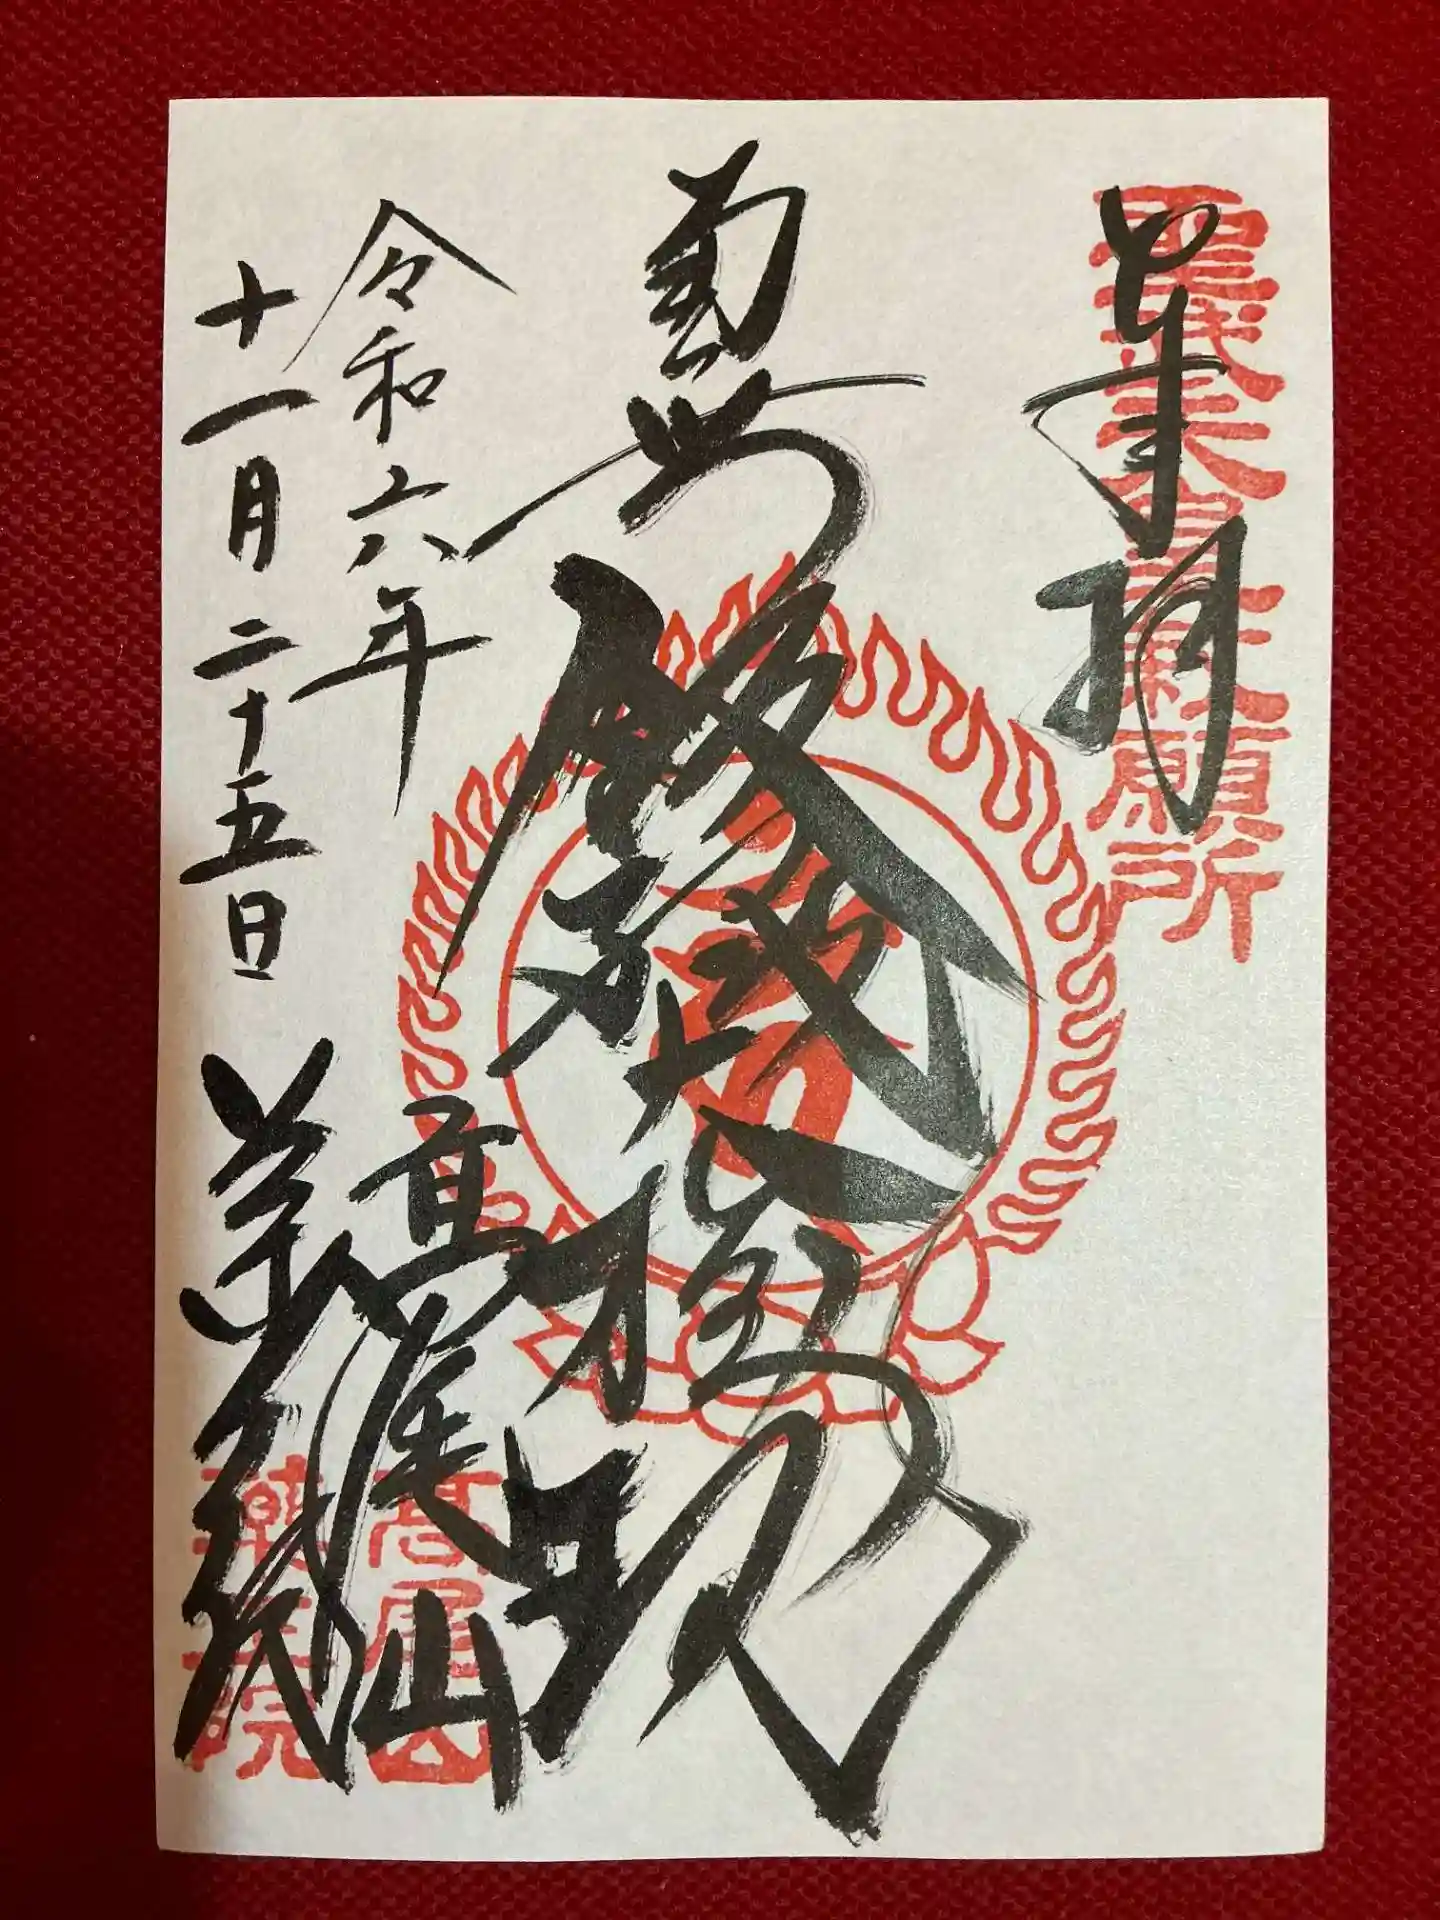 奉拝
聖武天皇勅願所
飯縄大権現
令和六年
十一月二十五日
髙尾山
薬王院
高尾山
薬王院